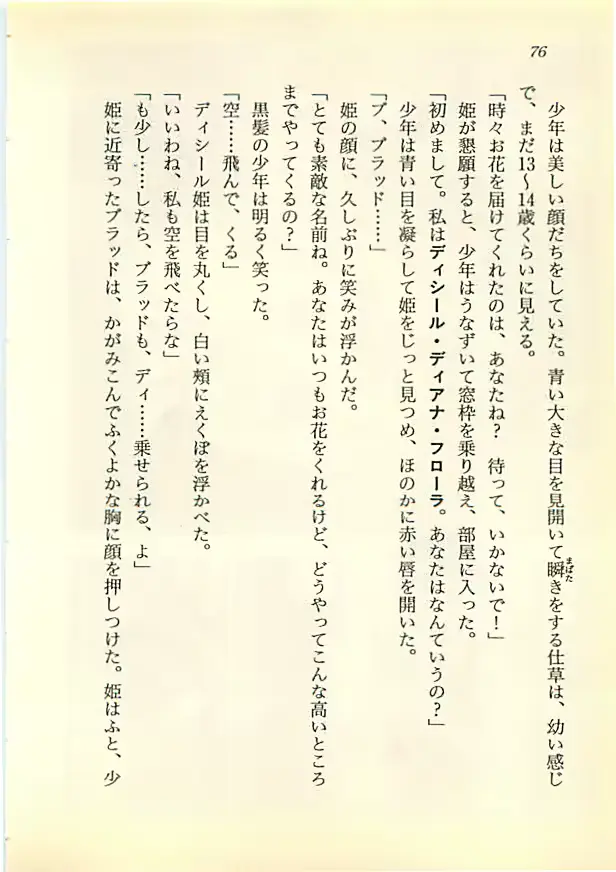 76
少年は美しい顔だちをしていた。青い大きな目を見開いて瞬きをする仕草は、幼い感じ
で、まだ13〜14歳くらいに見える。
「時々お花を届けてくれたのは、あなたね？　待って、いかないで！」
姫が懇願すると、少年はうなずいて窓枠を乗り越え、部屋に入った。
「初めまして。私はディシール・ディアナ・フローラ。あなたはなんていうの？」
少年は青い目を凝らして姫をじっと見つめ、ほのかに赤い唇を開いた。
「ブ、ブラッド……」
姫の顔に、久しぶりに笑みが浮かんだ。
「とても素敵な名前ね。あなたはいつもお花をくれるけど、どうやってこんな高いところ
までやってくるの？」
黒髪の少年は明るく笑った。
「空……飛んで、くる」
ディシール姫は目を丸くし、白い頬にえくぼを浮かべた。
「いいわね、私も空を飛べたらな」
「も少し……したら、ブラッドも、ディ……乗せられる、よ」
姫に近寄ったブラッドは、かがみこんでふくよかな胸に顔を押しつけた。姫はふと、少
まばた